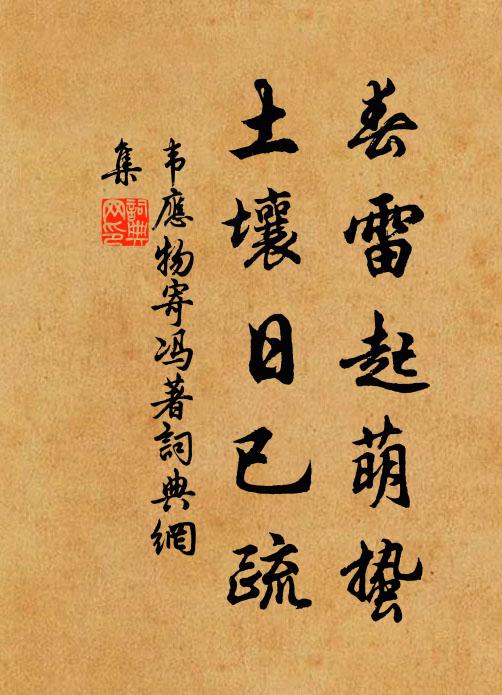 春雷起萌蛰
土壤日已疏
韦應物寄冯著詞典網
集
詞典
网印